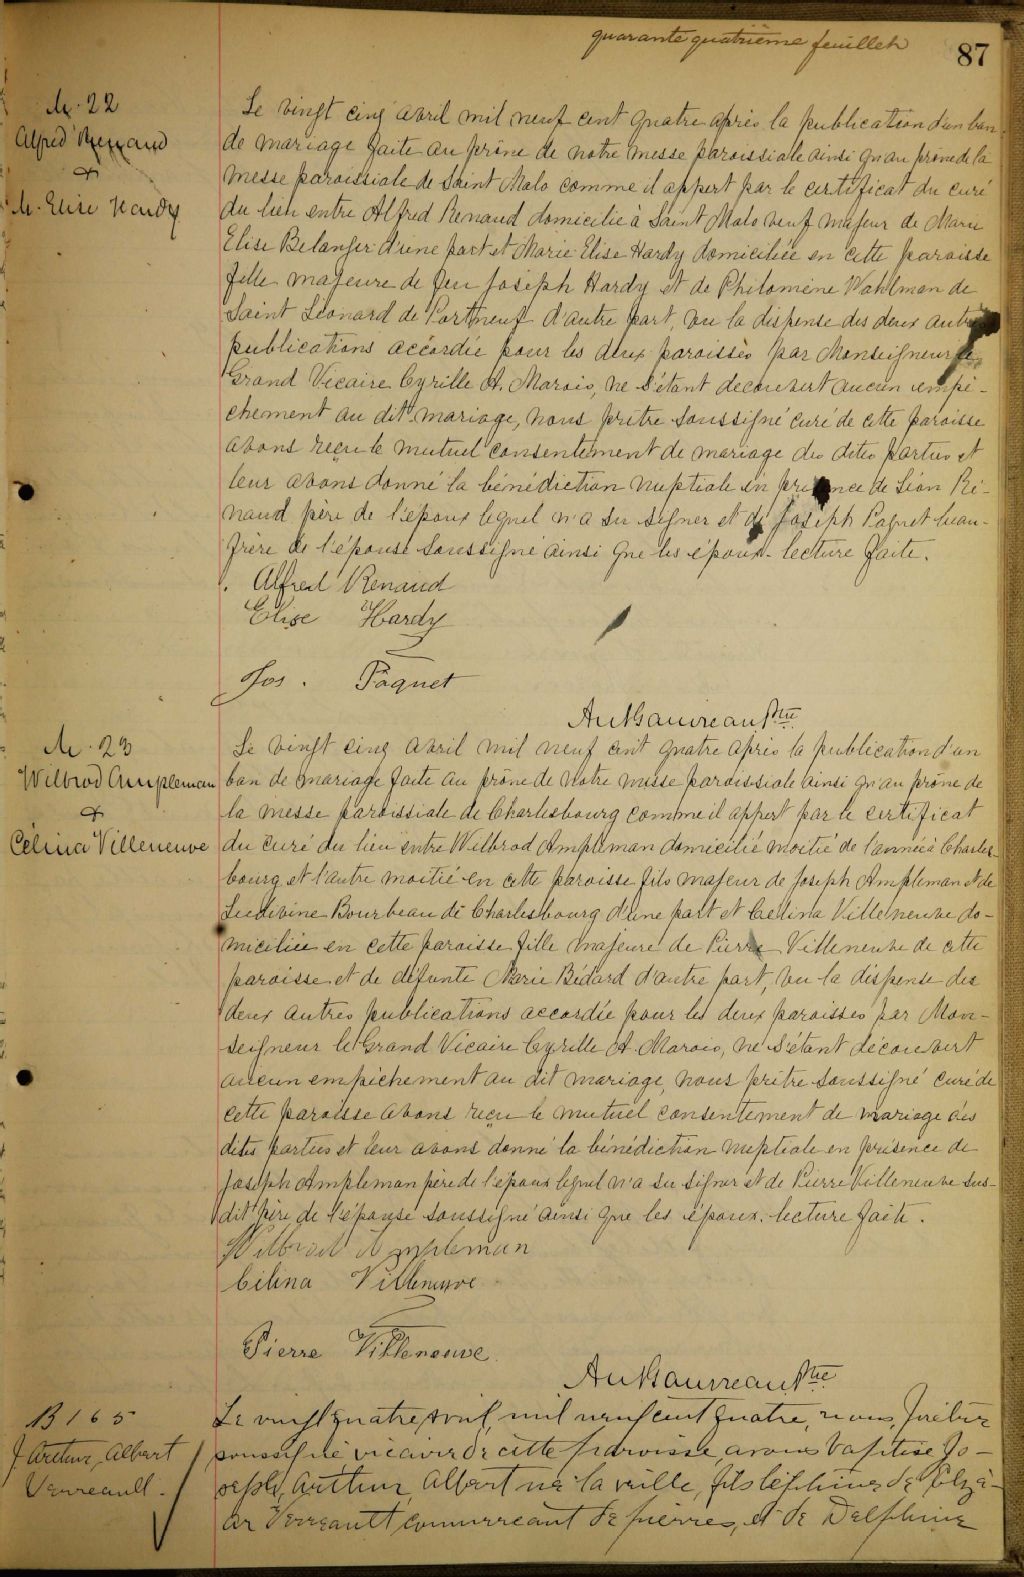 quarante quatrième feuillet
87
M. 22
Alfred Renaud
&
M. Elise Hardy
Le vingt cinq avril mil neuf cent quatre après la publication d'un ban
de mariage faite au prône de notre messe paroissiale ainsi qu'au prône de la
messe paroissiale de Saint Malo comme il appert par le certificat du curé
du lieu entre Alfred Renaud domicilié à Saint Malo veuf majeur de Marie
Elise Belanger d'une part et Marie Elise Hardy domiciliée en cette paroisse
fille majeure de feu Joseph Hardy et de Philomène Wahlman de
Saint Léonard de Portneuf d'autre part, vu la dispense des deux autres
publications accordée pour les deux paroisses par Monseigneur le
Grand Vicaire Cyrille A. Marois, ne s'étant decouvert aucun empê-
chement au dit mariage, nous prêtre soussigné curé de cette paroisse
avons reçu le mutuel consentement de mariage des dites parties et
leur avons donné la bénédiction nuptiale en présence de Léon Ré-
naud père de l'époux lequel n'a su signer et de Joseph Paquet beau-
frère de l'épouse soussigné ainsi que les époux. lecture faite.
Alfred Renaud
Elise Hardy
Jos. Paquet
Ant Gauvreau Ptre
M. 23
Wilbrod Ampleman
&
Célina Villeneuve
Le vingt cinq avril mil neuf cent quatre après la publication d'un
ban de mariage faite au prône de notre messe paroissiale ainsi qu'au prône de
la messe paroissiale de Charlesbourg comme il appert par le certificat
du curé du lieu entre Wilbrod Ampleman domicilié moitié de l'année à Charles-
bourg et l'autre moitié en cette paroisse fils majeur de Joseph Ampleman et de
Ludivine Bourbeau de Charlesbourg d'une part et Celina Villeneuve do-
miciliée en cette paroisse fille majeure de Pierre Villeneuve de cette
paroisse et de défunte Marie Bédard d'autre part, vu la dispense des
deux autres publications accordée pour les deux paroisses par Mon-
seigneur le Grand Vicaire Cyrille A. Marois, ne s'étant découvert
aucun empêchement au dit mariage, nous prêtre soussigné curé de
cette paroisse avons reçu le mutuel consentement de mariage des
dites parties et leur avons donné la bénédiction nuptiale en présence de
Joseph Ampleman père de l'époux lequel n'a su signer et de Pierre Villeneuve sus-
dit père de l'épouse soussigné ainsi que les époux. lecture faite.
Wilbrod Ampleman
Célina Villeneuve
Pierre Villeneuve
Ant Gauvreau Ptre
B 165
J. Arthur, Albert
Verreault.
Le vingt quatre Avril, mil neuf cent quatre, nous, prêtre
soussigné vicaire de cette paroisse, avons baptisé Jo-
seph, Arthur, Albert né la veille, fils légitime de Elzé-
ar Verreault, commerçant de pierres, et de Delphine